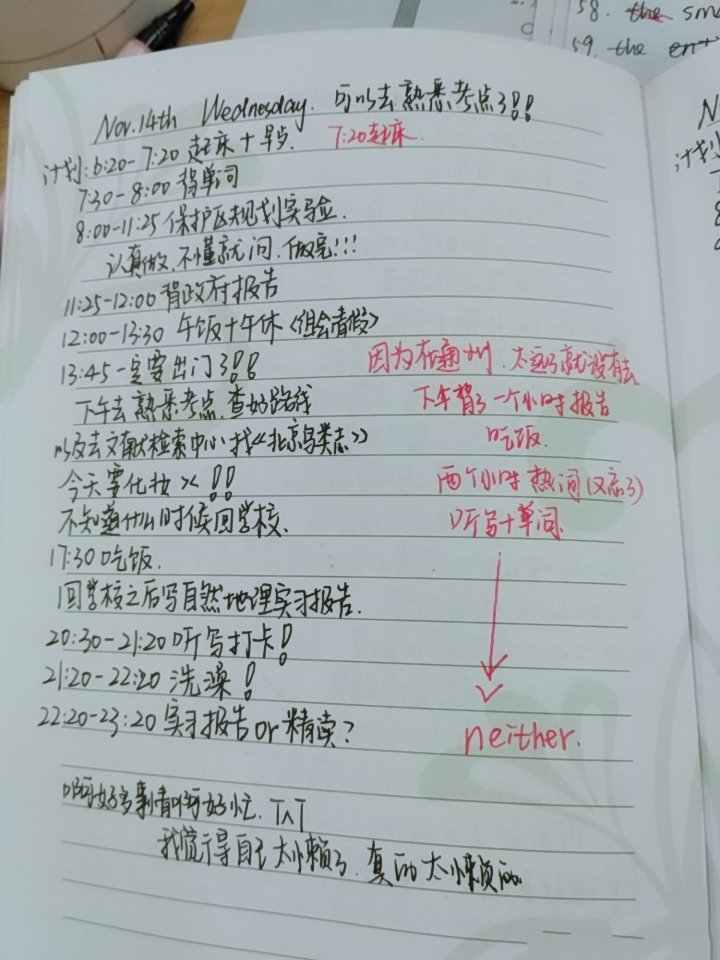 58. the sm
59. the enti
Nov.14th Wednesday. 可以去熟悉考点了!!
计划: 6:20-7:20 起床+早点. 7:20起床.
7:30-8:00 背单词
8:00-11:25 保护区规划实验.
认真做、不懂就问、做完!!!
11:25-12:00 背政府报告
12:00-13:30 午饭+午休<组会请假>
13:45 一定要出门了!! 因为在通州、太远了就没有去
下午去熟悉考点、查好路线 下午背了一个小时报告
以及去文献检索中心找《北京鸟类志》 吃饭.
今天要化妆 !! 两个小时热词(又忘了)
不知道什么时候回学校、 听写+单词.
17:30 吃饭.
回学校之后写自然地理实习报告.
20:30-21:20 听写打卡!
21:20-22:20 洗澡!
22:20-23:20 实习报告 or 精读? neither.
啊好多事情啊好忙. T^T
我觉得自己太懒了、真的太懒